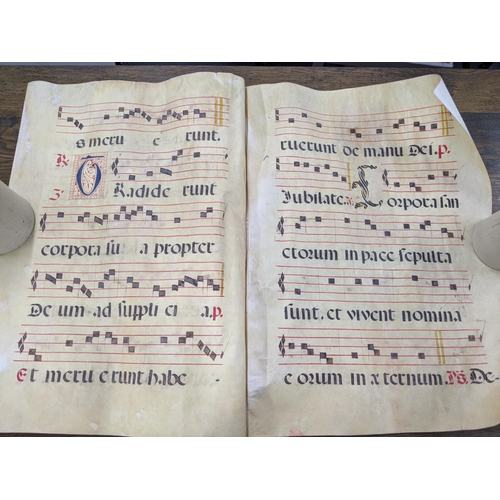 s meru e runt.
R O Radide runt
3. corpora su a propter
De um ad suppli ci a. p.
Et meru e runt habe
ruerunt de manu Dei. p.
Iubilate. R. Corpora san
ctorum in pace sepulta
sunt, et vivent nomina
e orum in æ ternum. Ps. De-